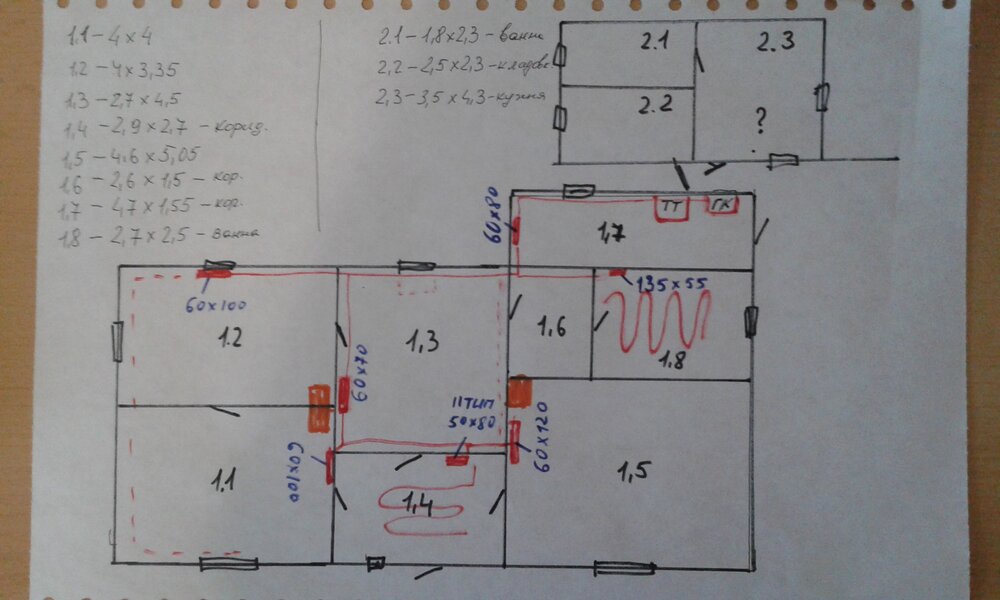 1.1 - 4 x 4
1.2 - 4 x 3,35
1.3 - 2,7 x 4,5
1,4 - 2,9 x 2,7 - корид.
1,5 - 4.6 x 5,05
1.6 - 2,6 x 1,5 - кор.
1,7 - 4,7 x 1,55 - кор.
1.8 - 2,7 x 2,5 - ванна
2.1 - 1,8 x 2,3 - ванна
2,2 - 2,5 x 2,3 - кладов.
2,3 - 3,5 x 4,3 - кухня
2.1
2.3
2.2
?
ТТ
ГК
60 x 80
1,7
60 x 100
135 x 55
1.2
1,3
1.6
1.8
60 x 70
11 тип
50 x 80
60 x 120
60 x 100
1.1
1,4
1,5